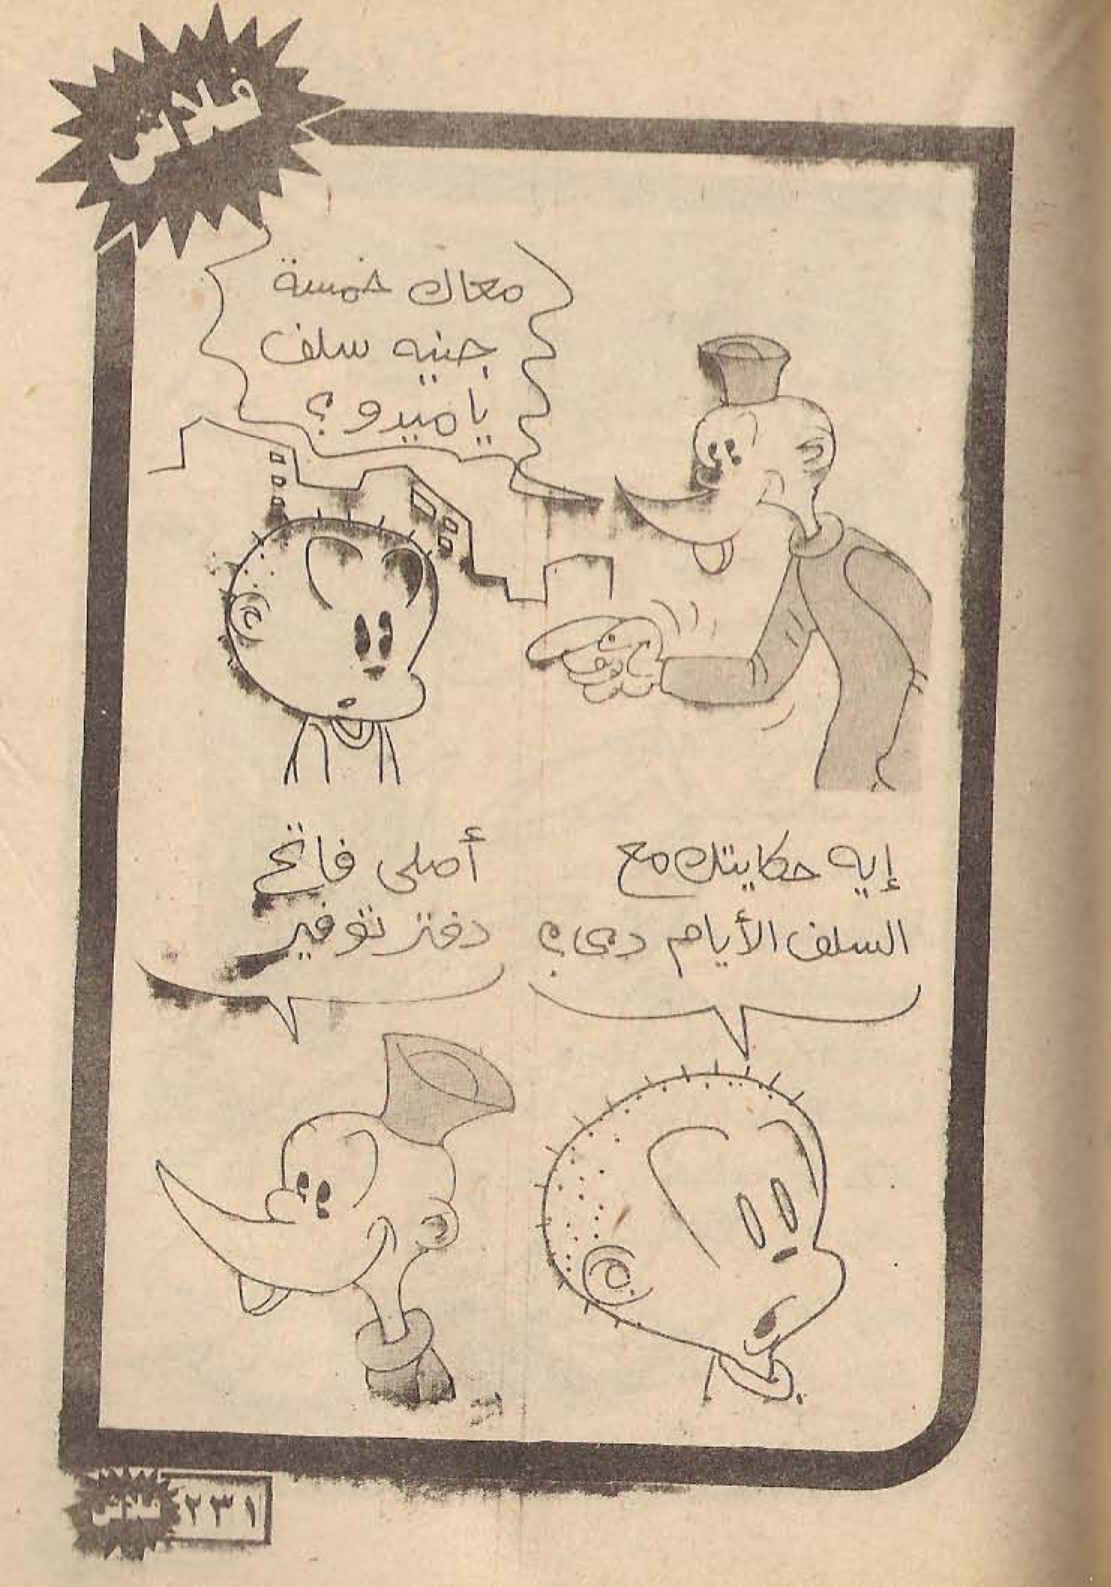 فلاش
معاك خمسة
جنيه سلف
ياميدو؟
إيه حكايتك مع
السلف الأيام دى؟
أصلى فاتح
دفتر توفير
٢٣١
فلاش